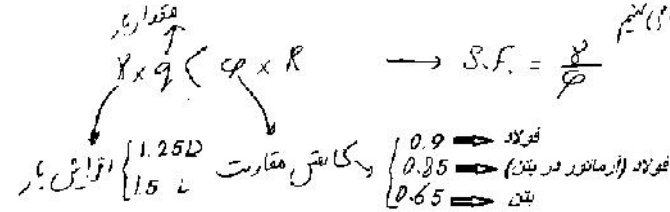 مقدار بار
γ × q < φ × R → S.F. = γ/φ
افزایش بار { 1.25D کاهش مقاومت { 0.9 ⇒ فولاد
1.5 L 0.85 ⇒ فولاد (آرماتور در بتن)
0.65 ⇒ بتن